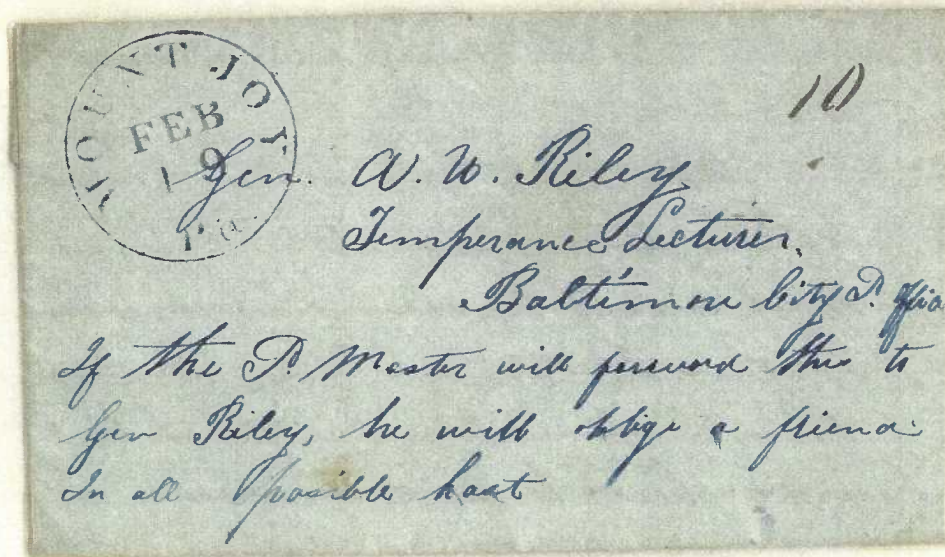 MOUNT JOY
Pa.
FEB
19
10
Gen. A. W. Riley
Temperance Lecturer.
Baltimore City P. Offic
If the P. Master will forward this to
Gen Riley, he will oblige a friend.
In all possible hast